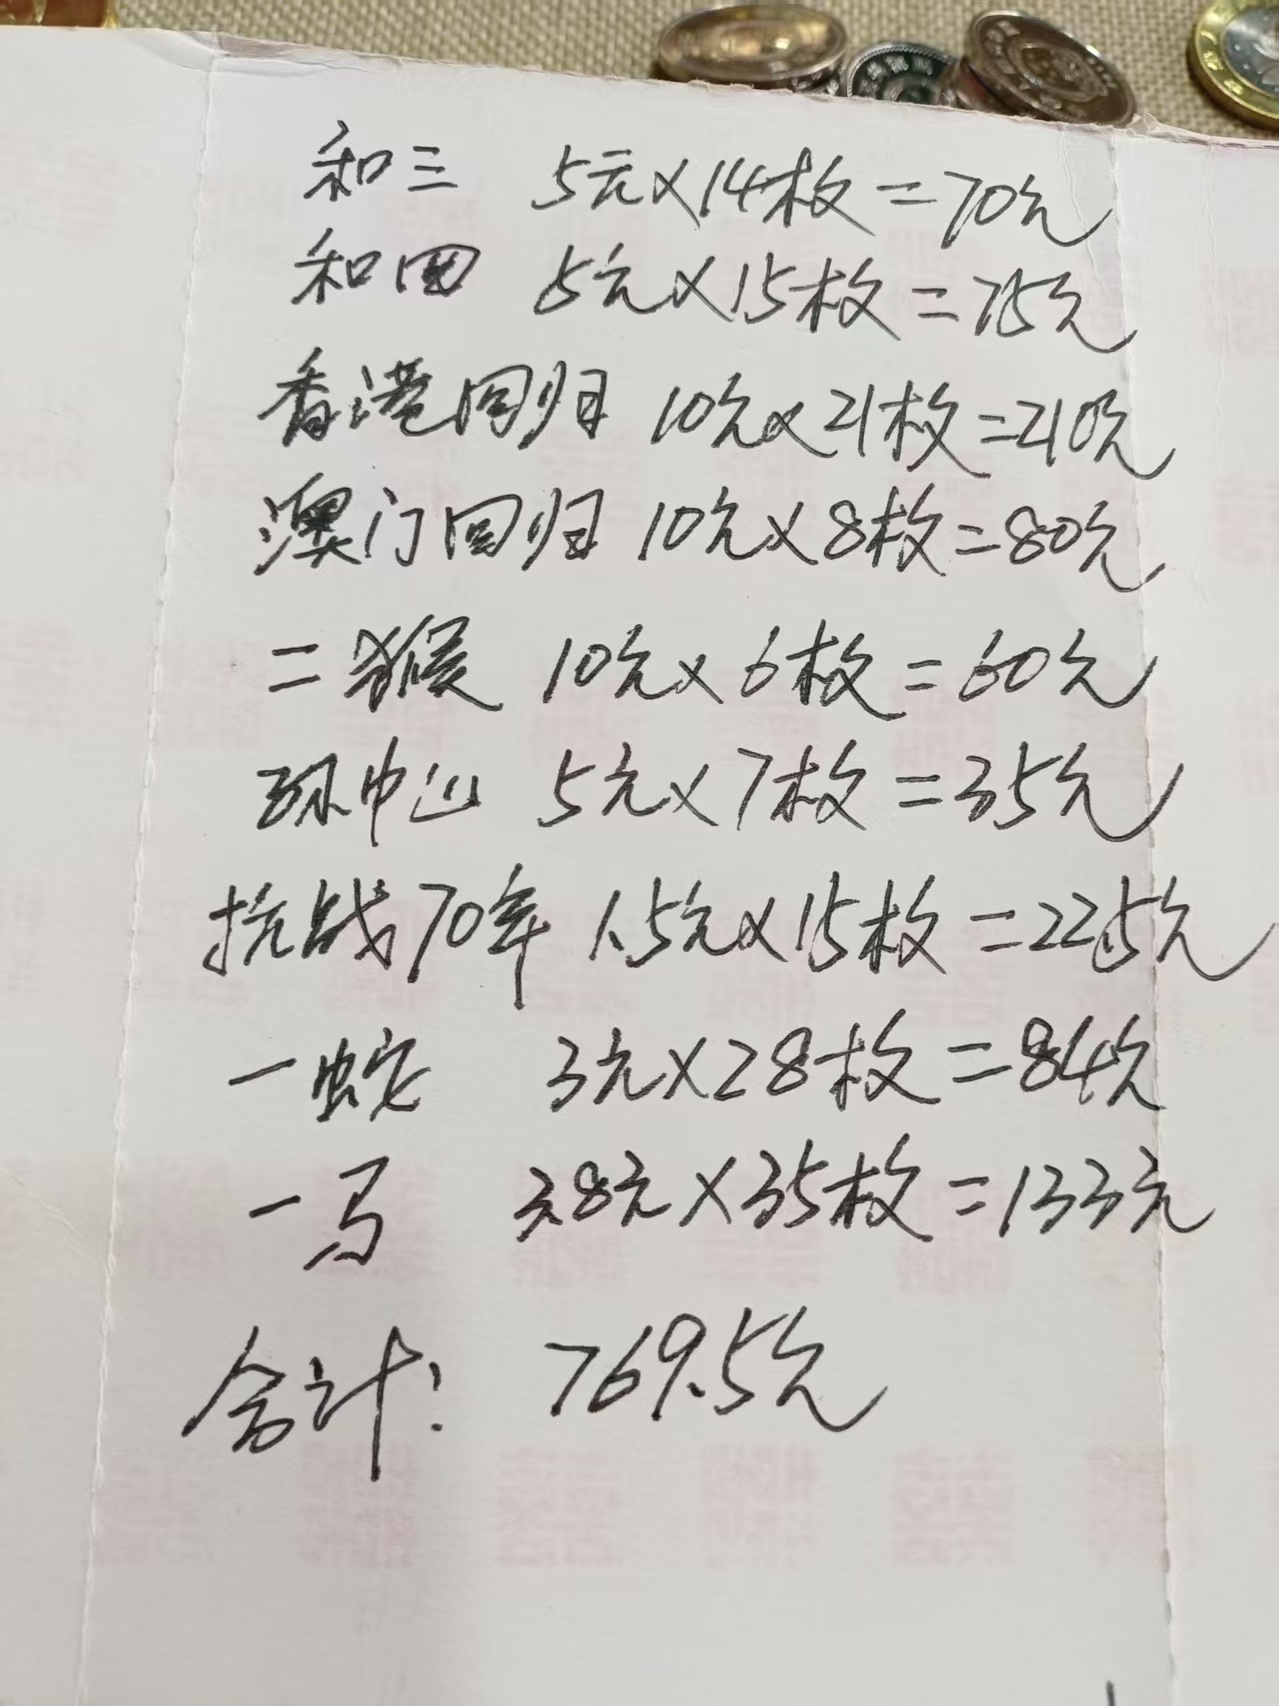 和三 5元×14枚=70元
和四 5元×15枚=75元
香港回归 10元×21枚=210元
澳门回归 10元×8枚=80元
二猴 10元×6枚=60元
孙中山 5元×7枚=35元
抗战70年 1.5元×15枚=22.5元
一蛇 3元×28枚=84元
一马 3.8元×35枚=133元
合计: 769.5元